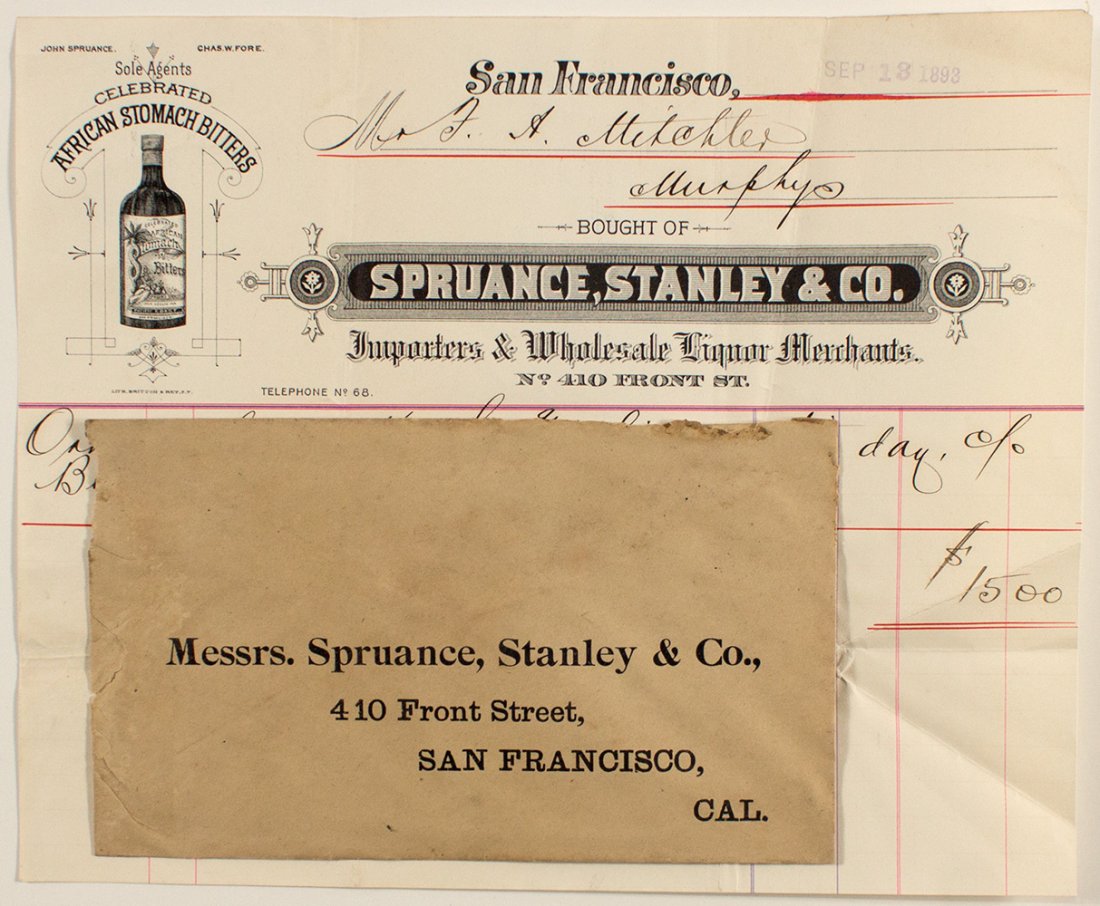 JOHN SPRUANCE. CHAS. W. FORE.
Sole Agents
CELEBRATED
AFRICAN STOMACH BITTERS
CELEBRATED
AFRICAN
Stomach
Bitters
San Francisco, SEP 13 1893
Mr F. A. Mitchler
Murphys
BOUGHT OF
SPRUANCE, STANLEY & CO.
Importers & Wholesale Liquor Merchants.
No. 410 FRONT ST.
LITH. BRITTON & REY, S.F.
TELEPHONE No 68.
day, c/o
$1500
Messrs. Spruance, Stanley & Co.,
410 Front Street,
SAN FRANCISCO,
CAL.